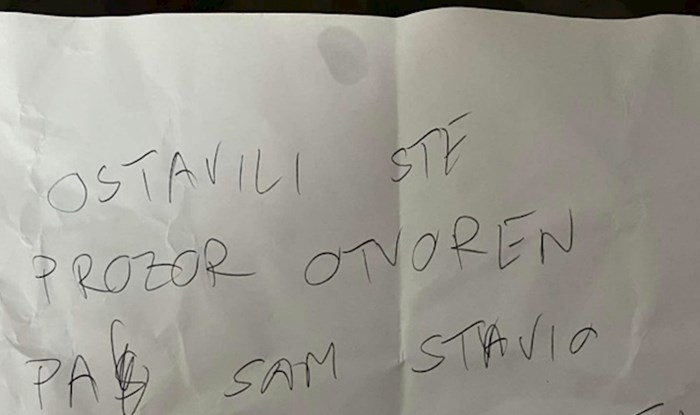 OSTAVILI STE
PROZOR OTVOREN
PA SAM STAVIO